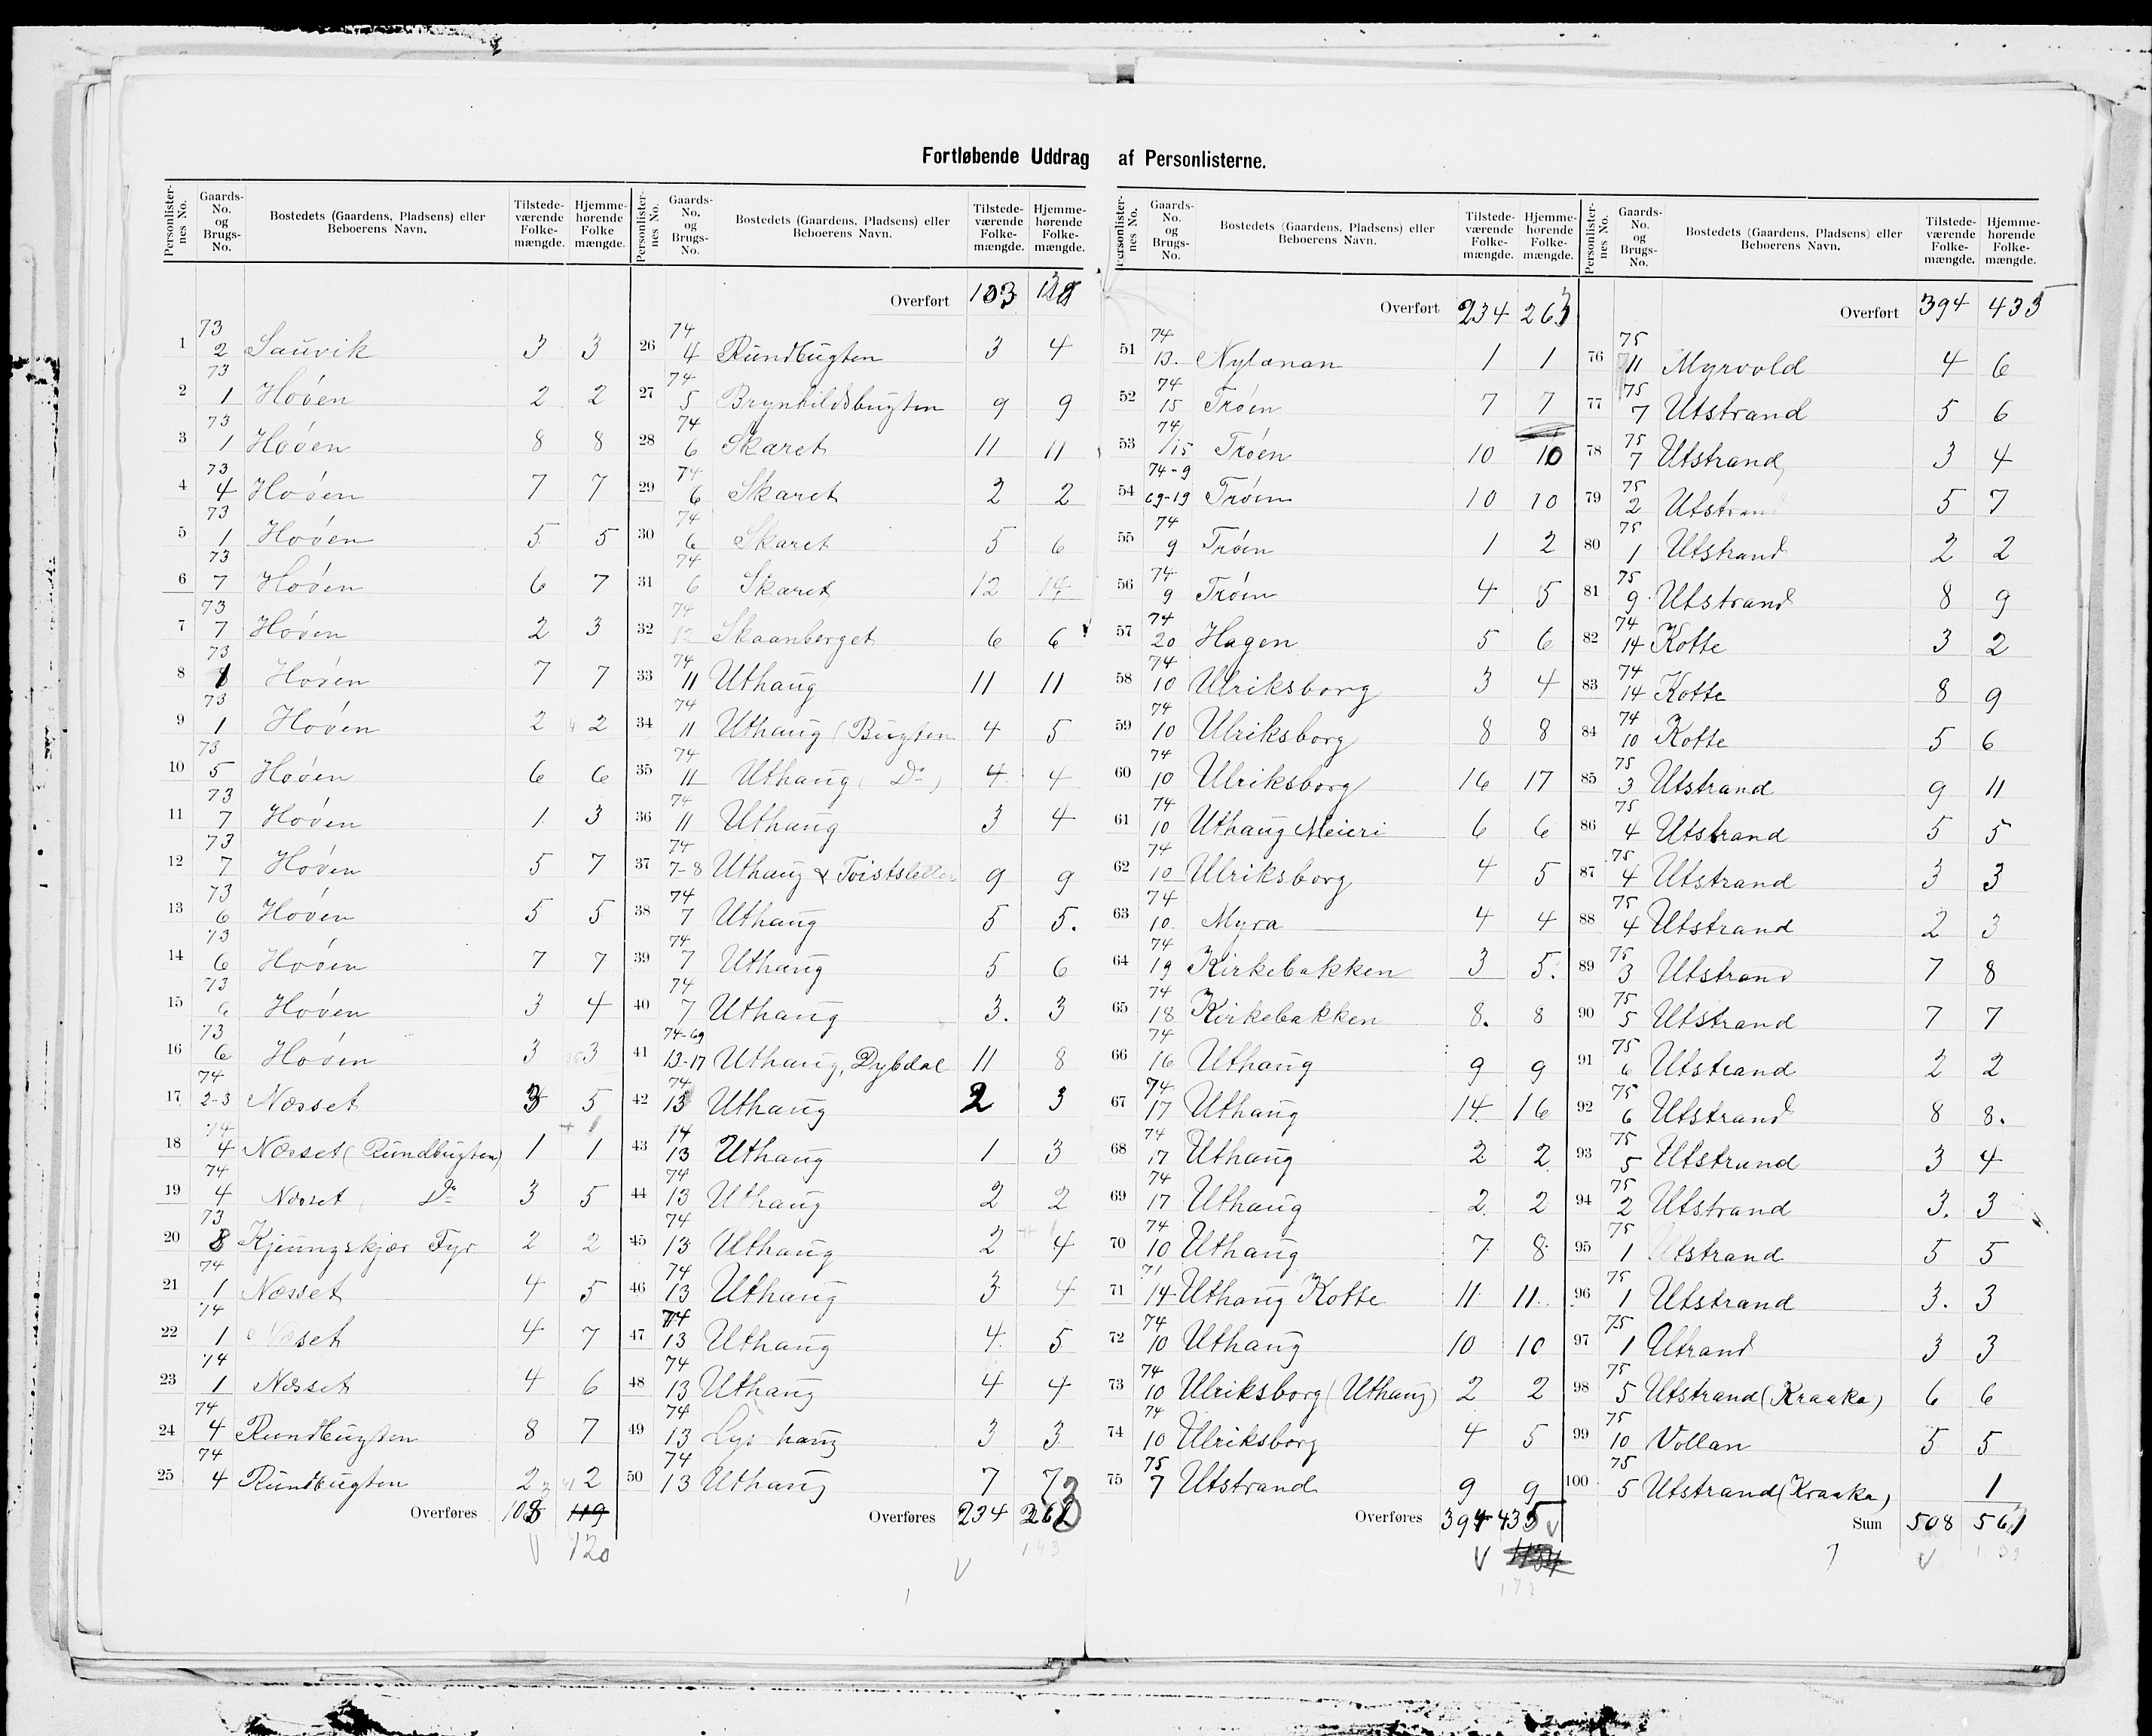 Fortløbende Uddrag af Personlisterne.
Personlisternes No. Gaards-No. og Brugs-No. Bostedets (Gaardens, Pladsens) eller Beboerens Navn. Tilstedeværende Folkemængde. Hjemmehørende Folkemængde.
1 73 2 Sauvik 3 3
2 73 1 Hoøen 2 2
3 73 1 Hoøen 8 8
4 73 4 Hoøen 7 7
5 73 1 Hoøen 5 5
6 73 7 Hoøen 6 7
7 73 7 Hoøen 2 3
8 73 1 Hoøen 7 7
9 73 1 Hoøen 2 2
10 73 5 Hoøen 6 6
11 73 7 Hoøen 1 3
12 73 7 Hoøen 5 7
13 73 6 Hoøen 5 5
14 73 6 Hoøen 7 7
15 73 6 Hoøen 3 4
16 73 6 Hoøen 3 3
17 74 2-3 Næsset 3 5
18 74 4 Næsset (Rundbugten) 1 1
19 74 4 Næsset Do 3 5
20 73 8 Kjeungskjær Fyr 2 2
21 74 1 Næsset 4 5
22 74 1 Næset 4 7
23 74 1 Næsset 4 6
24 74 4 Rundbugten 8 7
25 74 4 Rundbugten 2 2
Overføres 103 119
120
Personlisternes No. Gaards-No. og Brugs-No. Bostedets (Gaardens, Pladsens) eller Beboerens Navn. Tilstedeværende Folkemængde. Hjemmehørende Folkemængde.
Overført 103
26 74 4 Rundbugten 3 4
27 74 5 Brynhildsbugten 9 9
28 74 6 Skaret 11 11
29 74 6 Skaret 2 2
30 74 6 Skaret 5 6
31 74 6 Skaret 12 14
32 74 12 Skaanberget 6 6
33 74 11 Uthaug 11 11
34 74 11 Uthaug (Bugten 4 5
35 74 11 Uthaug (Do) 4 4
36 74 11 Uthaug 3 4
37 74 7-8 Uthaug & 9 9
38 74 7 Uthaug 5 5.
39 74 7 Uthaug 5 6
40 74 7 Uthaug 3. 3
41 74-69 13-17 Uthaug, Dybdal 11 8
42 74 13 Uthaug 2 3
43 74 13 Uthaug 1 3
44 74 13 Uthaug 2 2
45 74 13 Uthaug 2 4
46 74 13 Uthaug 3 4
47 74 13 Uthaug 4 5
48 74 13 Uthaug 4 4
49 74 13 Lys haug 3 3
50 74 13 Uthaug 7 7
Overføres 234 262
Personlisternes No. Gaards-No. og Brugs-No. Bostedets (Gaardens, Pladsens) eller Beboerens Navn. Tilstedeværende Folkemængde. Hjemmehørende Folkemængde.
Overført 234 263
51 74 13. Nylænan 1 1
52 74 15 Trøen 7 7
53 74 /15 Trøen 10 10
54 74-9 69-19 Trøen 10 10
55 74 9 Trøen 1 2
56 74 9 Trøen 4 5
57 74 20 Hagen 5 6
58 74 10 Ulriksborg 3 4
59 74 10 Ulriksborg 8 8
60 74 10 Ulriksborg 16 17
61 74 10 Uthaug Meieri 6 6
62 74 10 Ulriksborg 4 5
63 74 10 Myra 4 4
64 74 19 Kirkebakken 3 5.
65 74 18 Kirkebakken 8. 8
66 74 16 Uthaug 9 9
67 74 17 Uthaug 14 16
68 74 17 Uthaug 2 2
69 74 17 Uthaug 2 2
70 74 10 Uthaug 7 8
71 14 Uthaug Kotte 11 11
72 74 10 Uthaug 10 10
73 74 10 Ulriksborg (Uthaug) 2 2
74 74 10 Ulriksborg 4 5
75 75 7 Utstrand 9 9
Overføres 394 435
Personlisternes No. Gaards-No. og Brugs-No. Bostedets (Gaardens, Pladsens) eller Beboerens Navn. Tilstedeværende Folkemængde. Hjemmehørende Folkemængde.
Overført 394 435
76 75 11 Myrvold 4 6
77 75 7 Utstrand 5 6
78 75 7 Utstrand 3 4
79 75 2 Utstrand 5 7
80 75 1 Utstrand 2 2
81 75 9 Utstrand 8 9
82 74 14 Kotte 3 2
83 74 14 Kotte 8 9
84 74 10 Kotte 5 6
85 75 3 Utstrand 9 11
86 75 4 Utstrand 5 5
87 75 4 Utstrand 3 3
88 75 4 Utstrand 2 3
89 75 3 Utstrand 7 8
90 75 5 Utstrand 7 7
91 75 6 Utstrand 2 2
92 75 6 Utstrand 8 8.
93 75 5 Utstrand 3 4
94 75 2 Utstrand 3. 3
95 75 1 Utstrand 5 5
96 75 1 Utstrand 3. 3
97 75 1 Utrand 3 3
98 75 5 Utstrand (Kraaka) 6 6
99 75 10 Vollan 5 5
100 75 5 Utstrand (Kraaka) 1
Sum 508 561